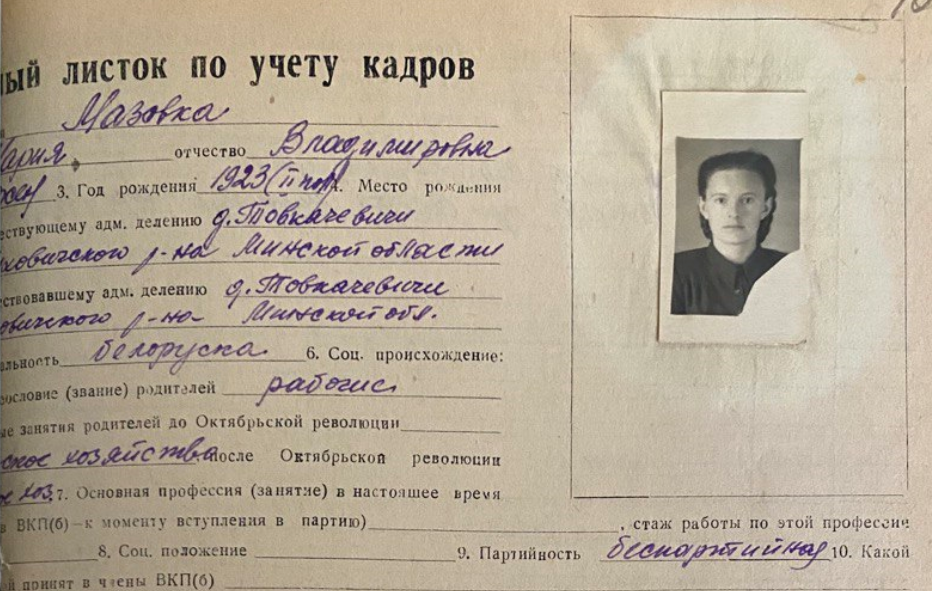 ный листок по учету кадров
Мазовка
Мария отчество Владимировна
3. Год рождения 1923 (II пол). Место рождения
ествующему адм. делению д. Товкачевичи
ховичского р-на Минской области
ствовавшему адм. делению д. Товкачевичи
овичского р-на Минской обл.
альность белоруска 6. Соц. происхождение:
ословие (звание) родителей
ые занятия родителей до Октябрьской революции
ское хозяйство после Октябрьской революции
хоз. 7. Основная профессия (занятие) в настоящее время
в ВКП(б)—к моменту вступления в партию) , стаж работы по этой профессии
8. Соц. положение 9. Партийность беспартийная 10. Какой
ей принят в члены ВКП(б)